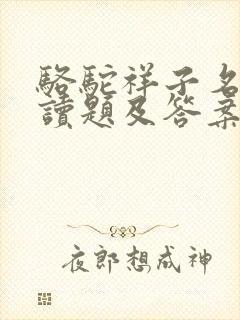 駱駝祥子名
讀題及答案
夜郎想成神